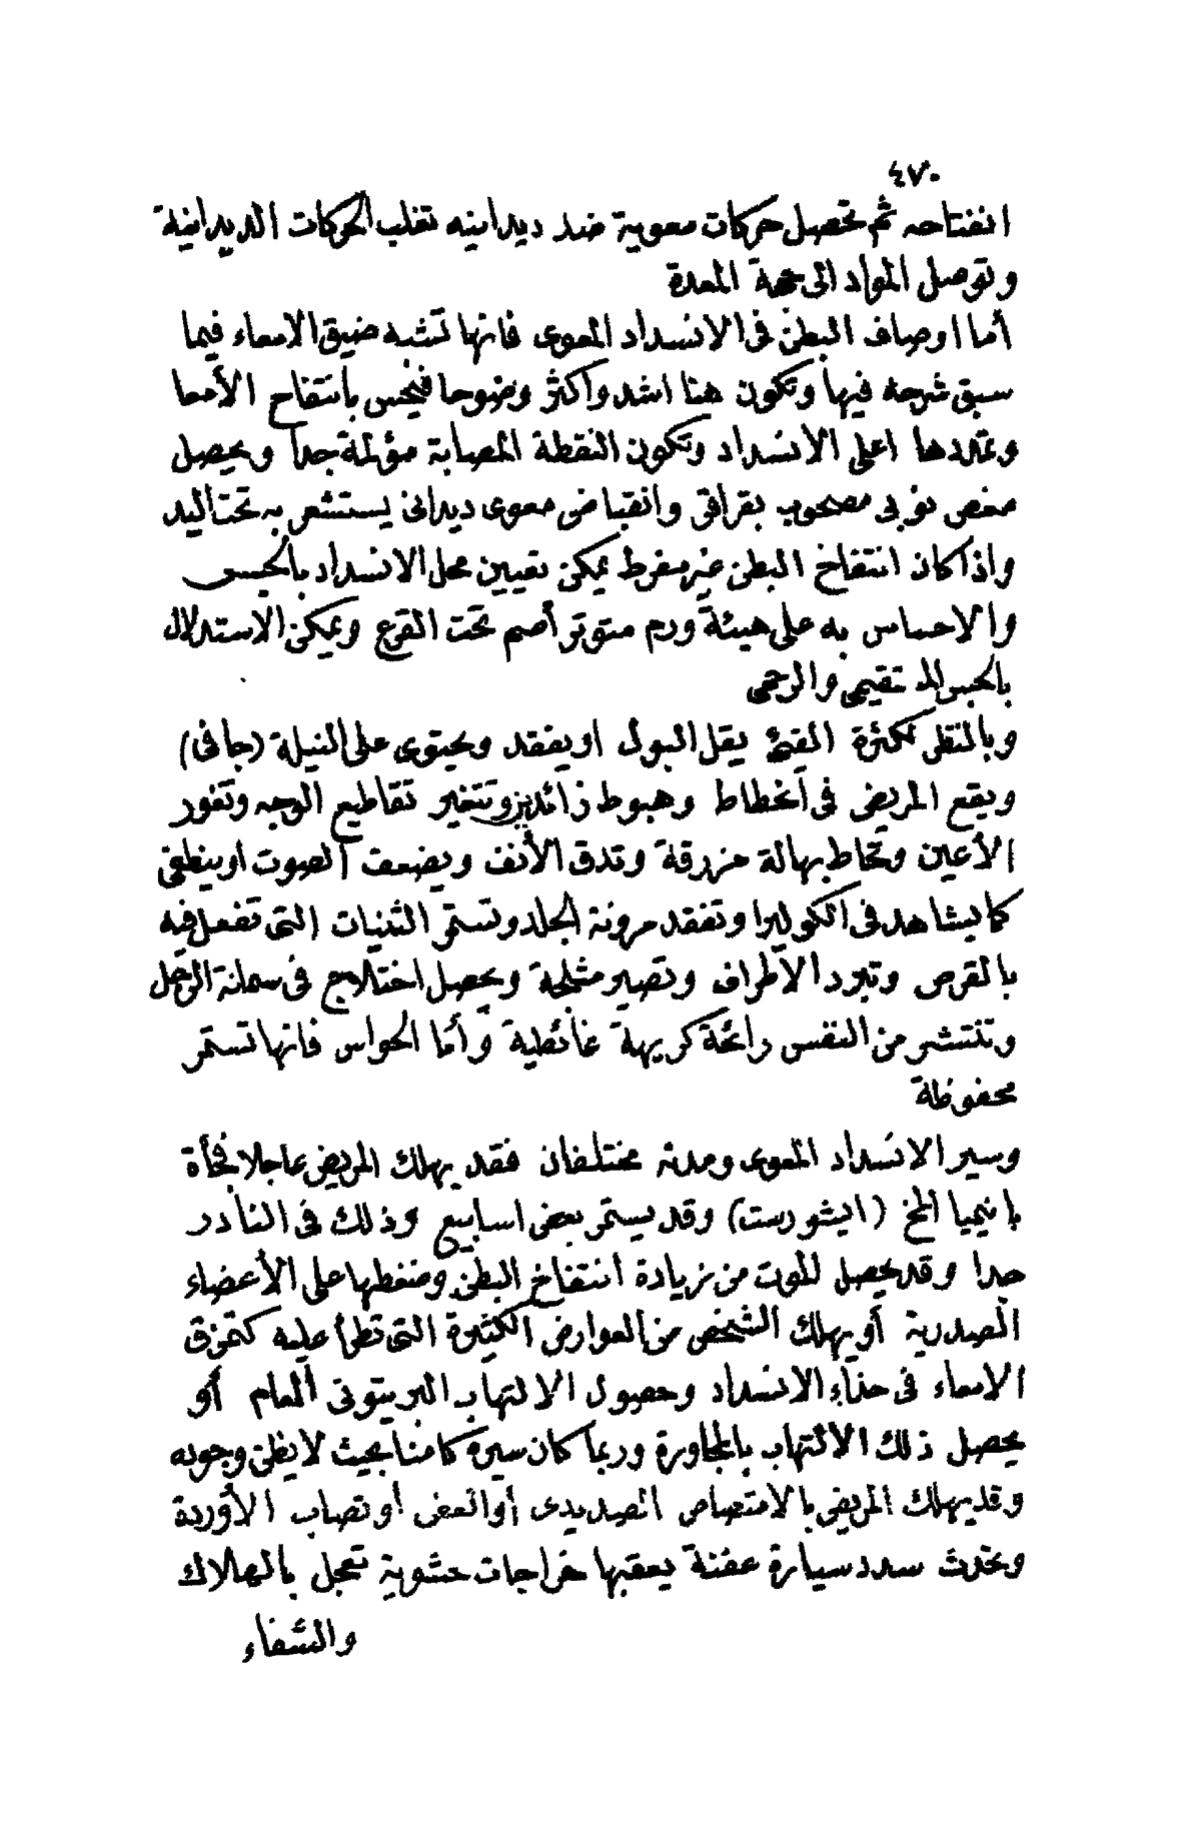 ٤٧٠
انفتاحه ثم تحصل حركات معوية ضد ديدانيه تغلب الحركات الديدانية
وتوصل المواد الى جهة المعدة
أما اوصاف البطن فى الانسداد المعوى فانها تشبه ضيق الامعاء فيما
سبق شرحه فيها وتكون هنا اشد واكثر وضوحا فيحس بانتفاخ الأمعا
وتمددها اعلى الانسداد وتكون النقطة المصابة مؤلمة جدا ويحصل
مغص نوبى مصحوب بقراقر وانقباض معوى ديدانى يستشعر به تحت اليد
واذا كان انتفاخ البطن غير مفرط يمكن تعيين محل الانسداد بالجس
والاحساس به على هيئة ورم متوتر أصم تحت القرع ويمكن الاستدلال
بالجس المستقيمى والرحمى
وبالنظر لكثرة القئ يقل البول او يفقد ويحتوى على النيلة (جافى)
ويقع المريض فى انحطاط وهبوط زائدين وتتغير تقاطيع الوجه وتغور
الأعين وتحاط بهالة مزرقة وتدق الأنف ويضعف الصوت او ينطفى
كما يشاهد فى الكوليرا وتفقد مرونة الجلد وتستمر الثنيات التى تفعل فيه
بالقرص وتبرد الأطراف وتصير مثلجة ويحصل اختلاج فى سمانة الرجل
وتنتشر من النفس رائحة كريهة غائطية وأما الحواس فانها تستمر
محفوظة
وسير الانسداد المعوى ومدته مختلفان فقد يهلك المريض عاجلا فجأة
بانيميا المخ (اليشورست) وقد يستمر بعض اسابيع وذلك فى النادر
جدا وقد يحصل الموت من زيادة انتفاخ البطن وضغطها على الأعضاء
الصدرية أو يهلك الشخص من العوارض الكثيرة التى تطرأ عليه كتمزق
الامعاء فى حذاء الانسداد وحصول الالتهاب البريتونى العام أو
يحصل ذلك الالتهاب بالمجاورة وربما كان سيره كامنا بحيث لا يظن وجوده
وقد يهلك المريض بالامتصاص الصديدى أو العفن أو تصاب الأوردة
وتحدث سدد سيارة عفنة يعقبها خراجات حشوية تعجل بالهلاك
والشفاء